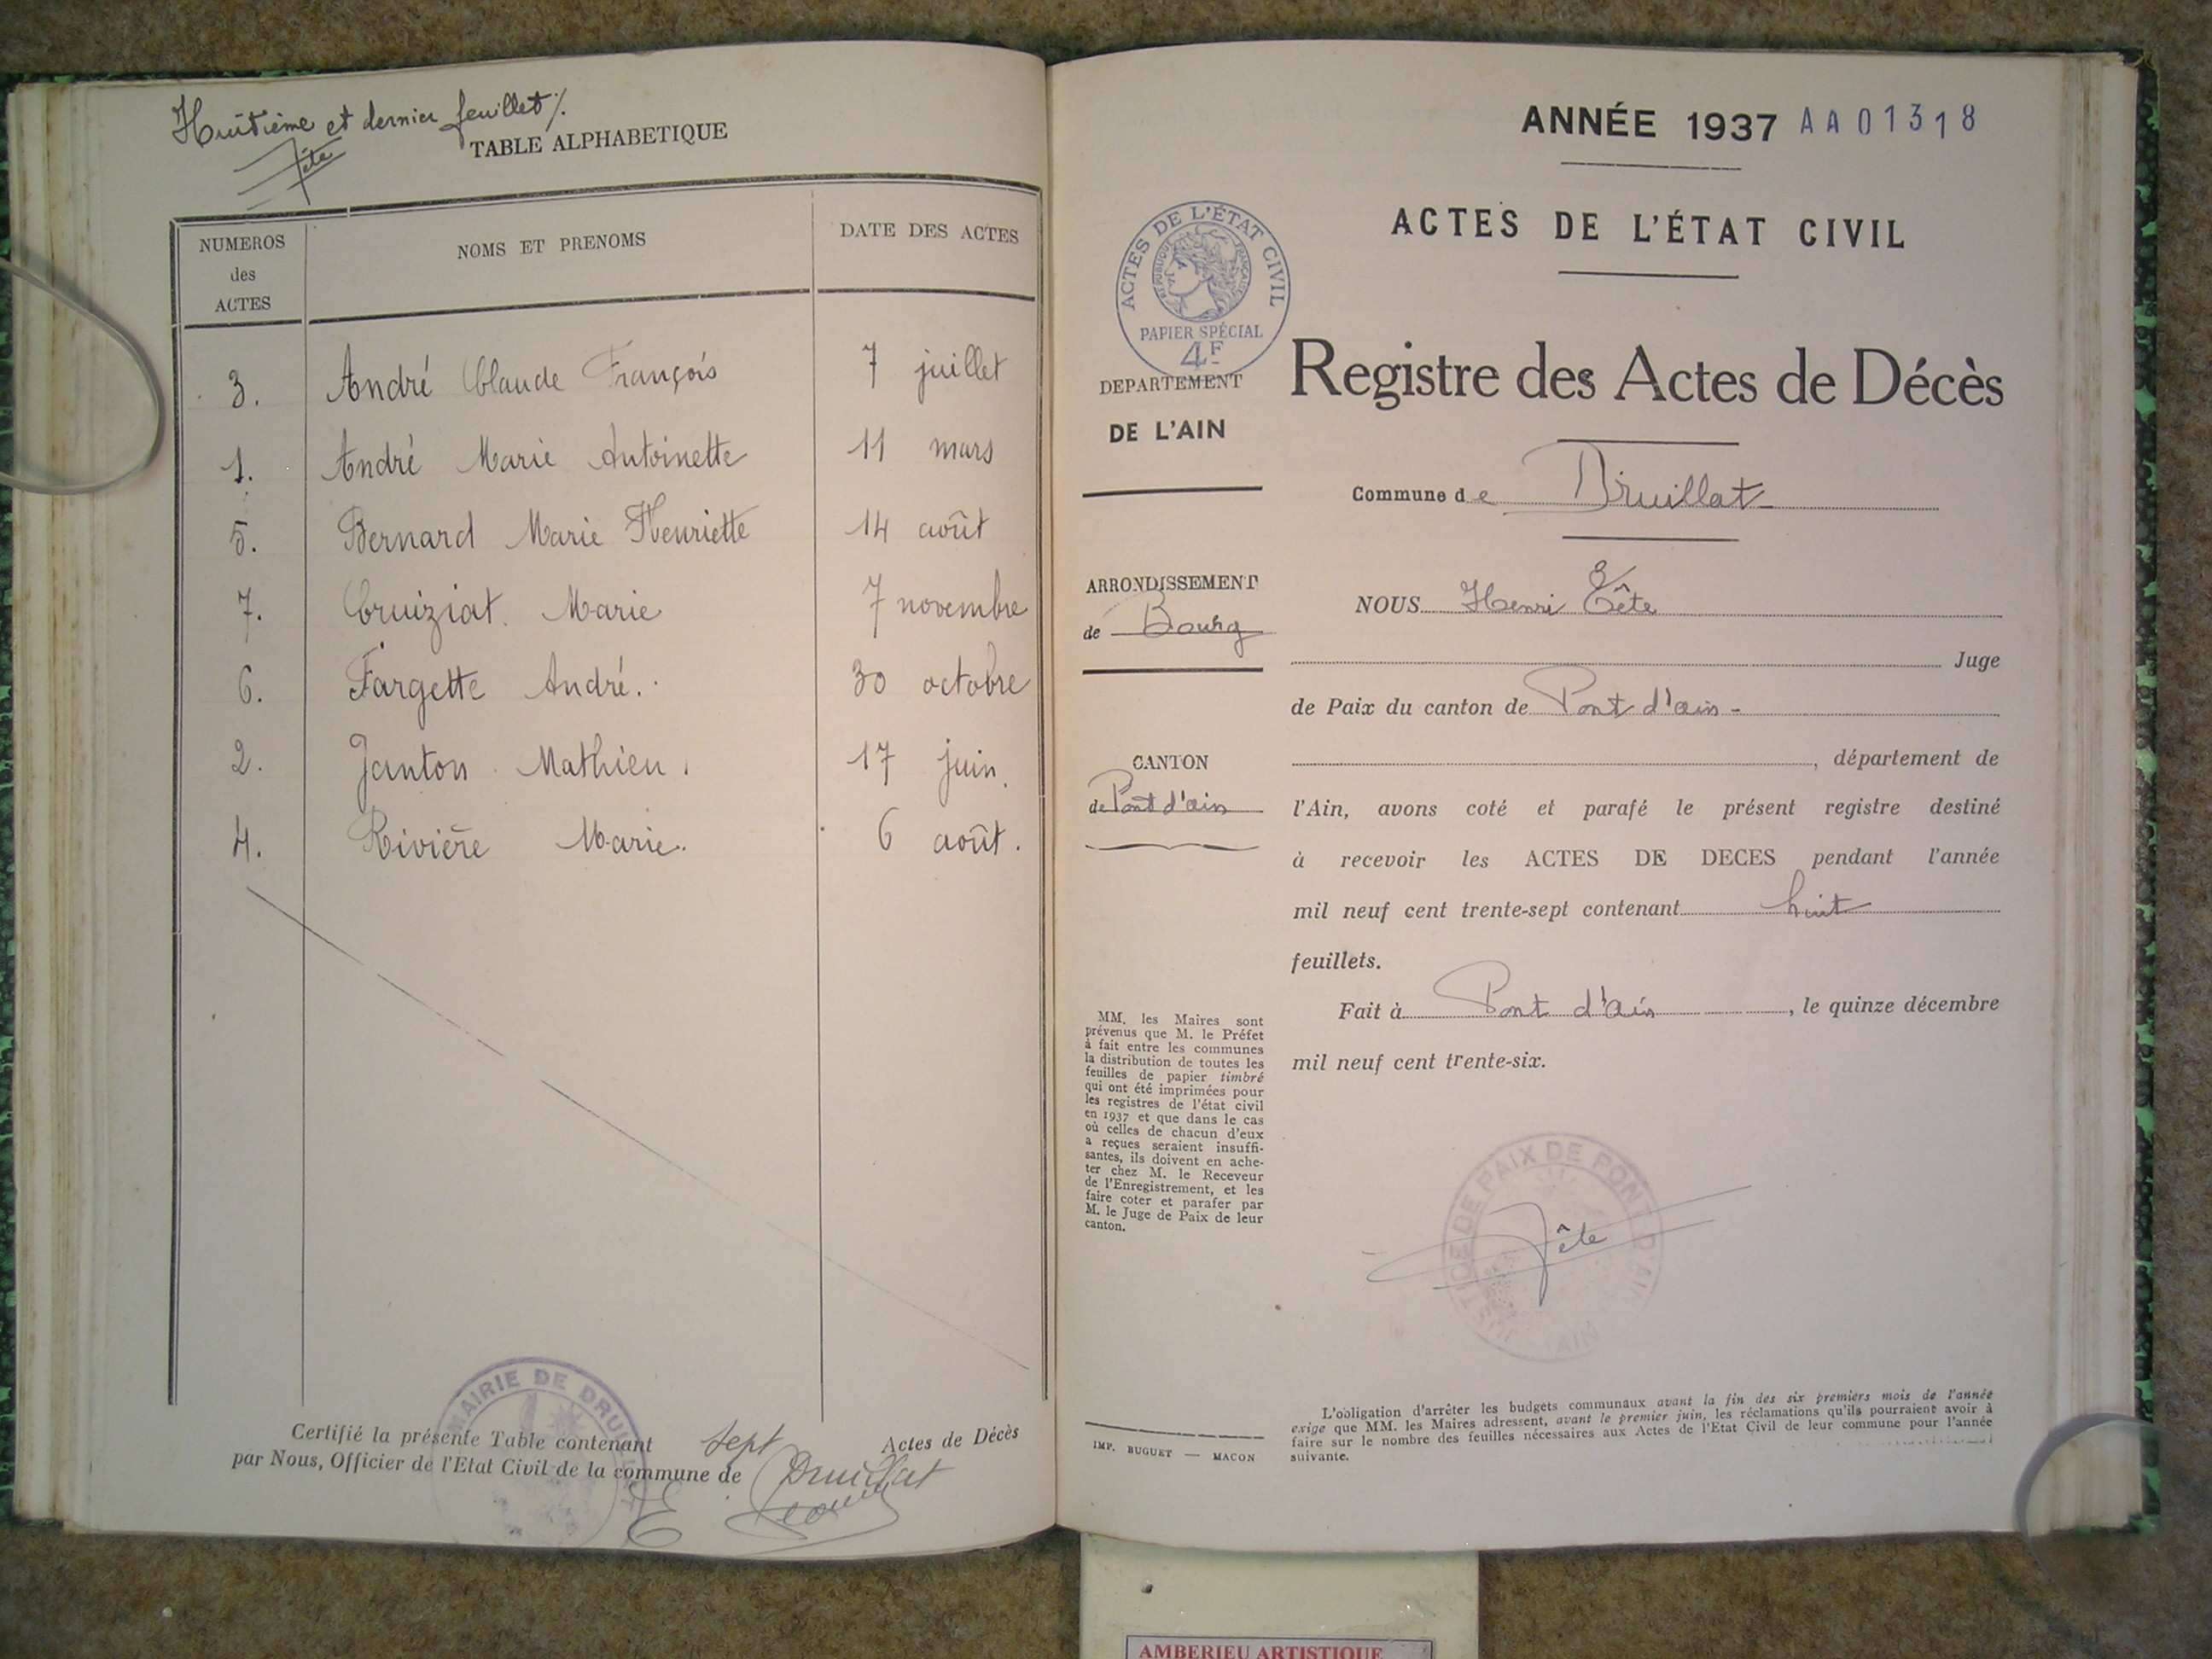 Huitième et dernier feuillet %.
Tête
TABLE ALPHABETIQUE
NUMEROS des ACTES NOMS ET PRENOMS DATE DES ACTES
3. André Claude François 7 juillet
1. André Marie Antoinette 11 mars
5. Bernard Marie Henriette 14 août
7. Cruiziat Marie 7 novembre
6. Fargette André. 30 octobre
2. Janton Mathieu. 17 juin.
4. Rivière Marie. 6 août.
MAIRIE DE DRUILLAT
Certifié la présente Table contenant sept Actes de Décès
par Nous, Officier de l'Etat Civil de la commune de Druillat
ANNÉE 1937 AA01318
ACTES DE L'ÉTAT CIVIL
ACTES DE L'ÉTAT CIVIL
REPUBLIQUE FRANÇAISE
PAPIER SPÉCIAL
4F
DEPARTEMENT
DE L'AIN
Registre des Actes de Décès
Commune de Druillat
ARRONDISSEMENT
de Bourg
CANTON
de Pont d'ain
NOUS Henri Tête
Juge
de Paix du canton de Pont d'ain -
, département de
l'Ain, avons coté et parafé le présent registre destiné
à recevoir les ACTES DE DECES pendant l'année
mil neuf cent trente-sept contenant huit
feuillets.
Fait à Pont d'Ain , le quinze décembre
mil neuf cent trente-six.
MM. les Maires sont
prévenus que M. le Préfet
à fait entre les communes
la distribution de toutes les
feuilles de papier timbré
qui ont été imprimées pour
les registres de l'état civil
en 1937 et que dans le cas
où celles de chacun d'eux
a reçues seraient insuffi-
santes, ils doivent en ache-
ter chez M. le Receveur
de l'Enregistrement, et les
faire coter et parafer par
M. le Juge de Paix de leur
canton.
JUSTICE DE PAIX DE PONT D'AIN
AIN
Tête
IMP. BUGUET — MACON
L'obligation d'arrêter les budgets communaux avant la fin des six premiers mois de l'année
exige que MM. les Maires adressent, avant le premier juin, les réclamations qu'ils pourraient avoir à
faire sur le nombre des feuilles nécessaires aux Actes de l'Etat Civil de leur commune pour l'année
suivante.
AMBERIEU ARTISTIQUE